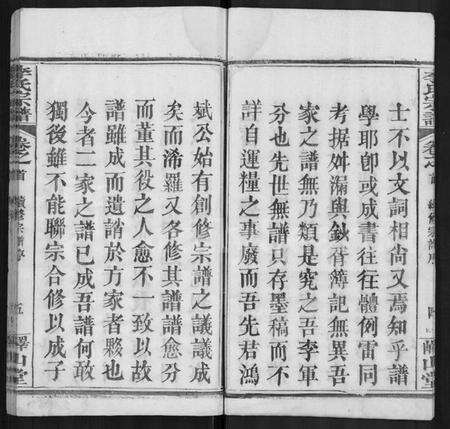 士不以文詞相尚又焉知乎譜
學耶卽或成書往往體例雷同
考据舛漏與鈔胥簿記無異吾
家之譜無乃類是究之吾李軍
分也先世無譜只存墨稿而不
詳自運糧之事廢而吾先君鴻
斌公始有創修宗譜之議議成
矣而浠羅又各修其譜譜愈分
而董其役之人愈不一致以故
譜雖成而遺誚於方家者夥也
今者二家之譜已成吾譜何敢
獨後雖不能聯宗合修以成子
李氏宗譜
卷之首
續修宗譜序
五